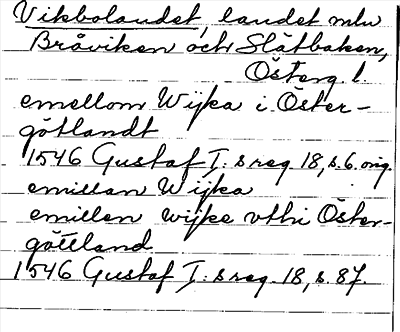 Vikbolandet, landet mln
Bråviken och Slätbaken,
Österg. l.
emellom Wijka i Öster-
götlandt
1546 Gustaf I:s reg. 18, s. 6. orig.
emillan Wijka
emillen wijke vthi Öster-
götland
1546 Gustaf I:s reg. 18, s. 87.